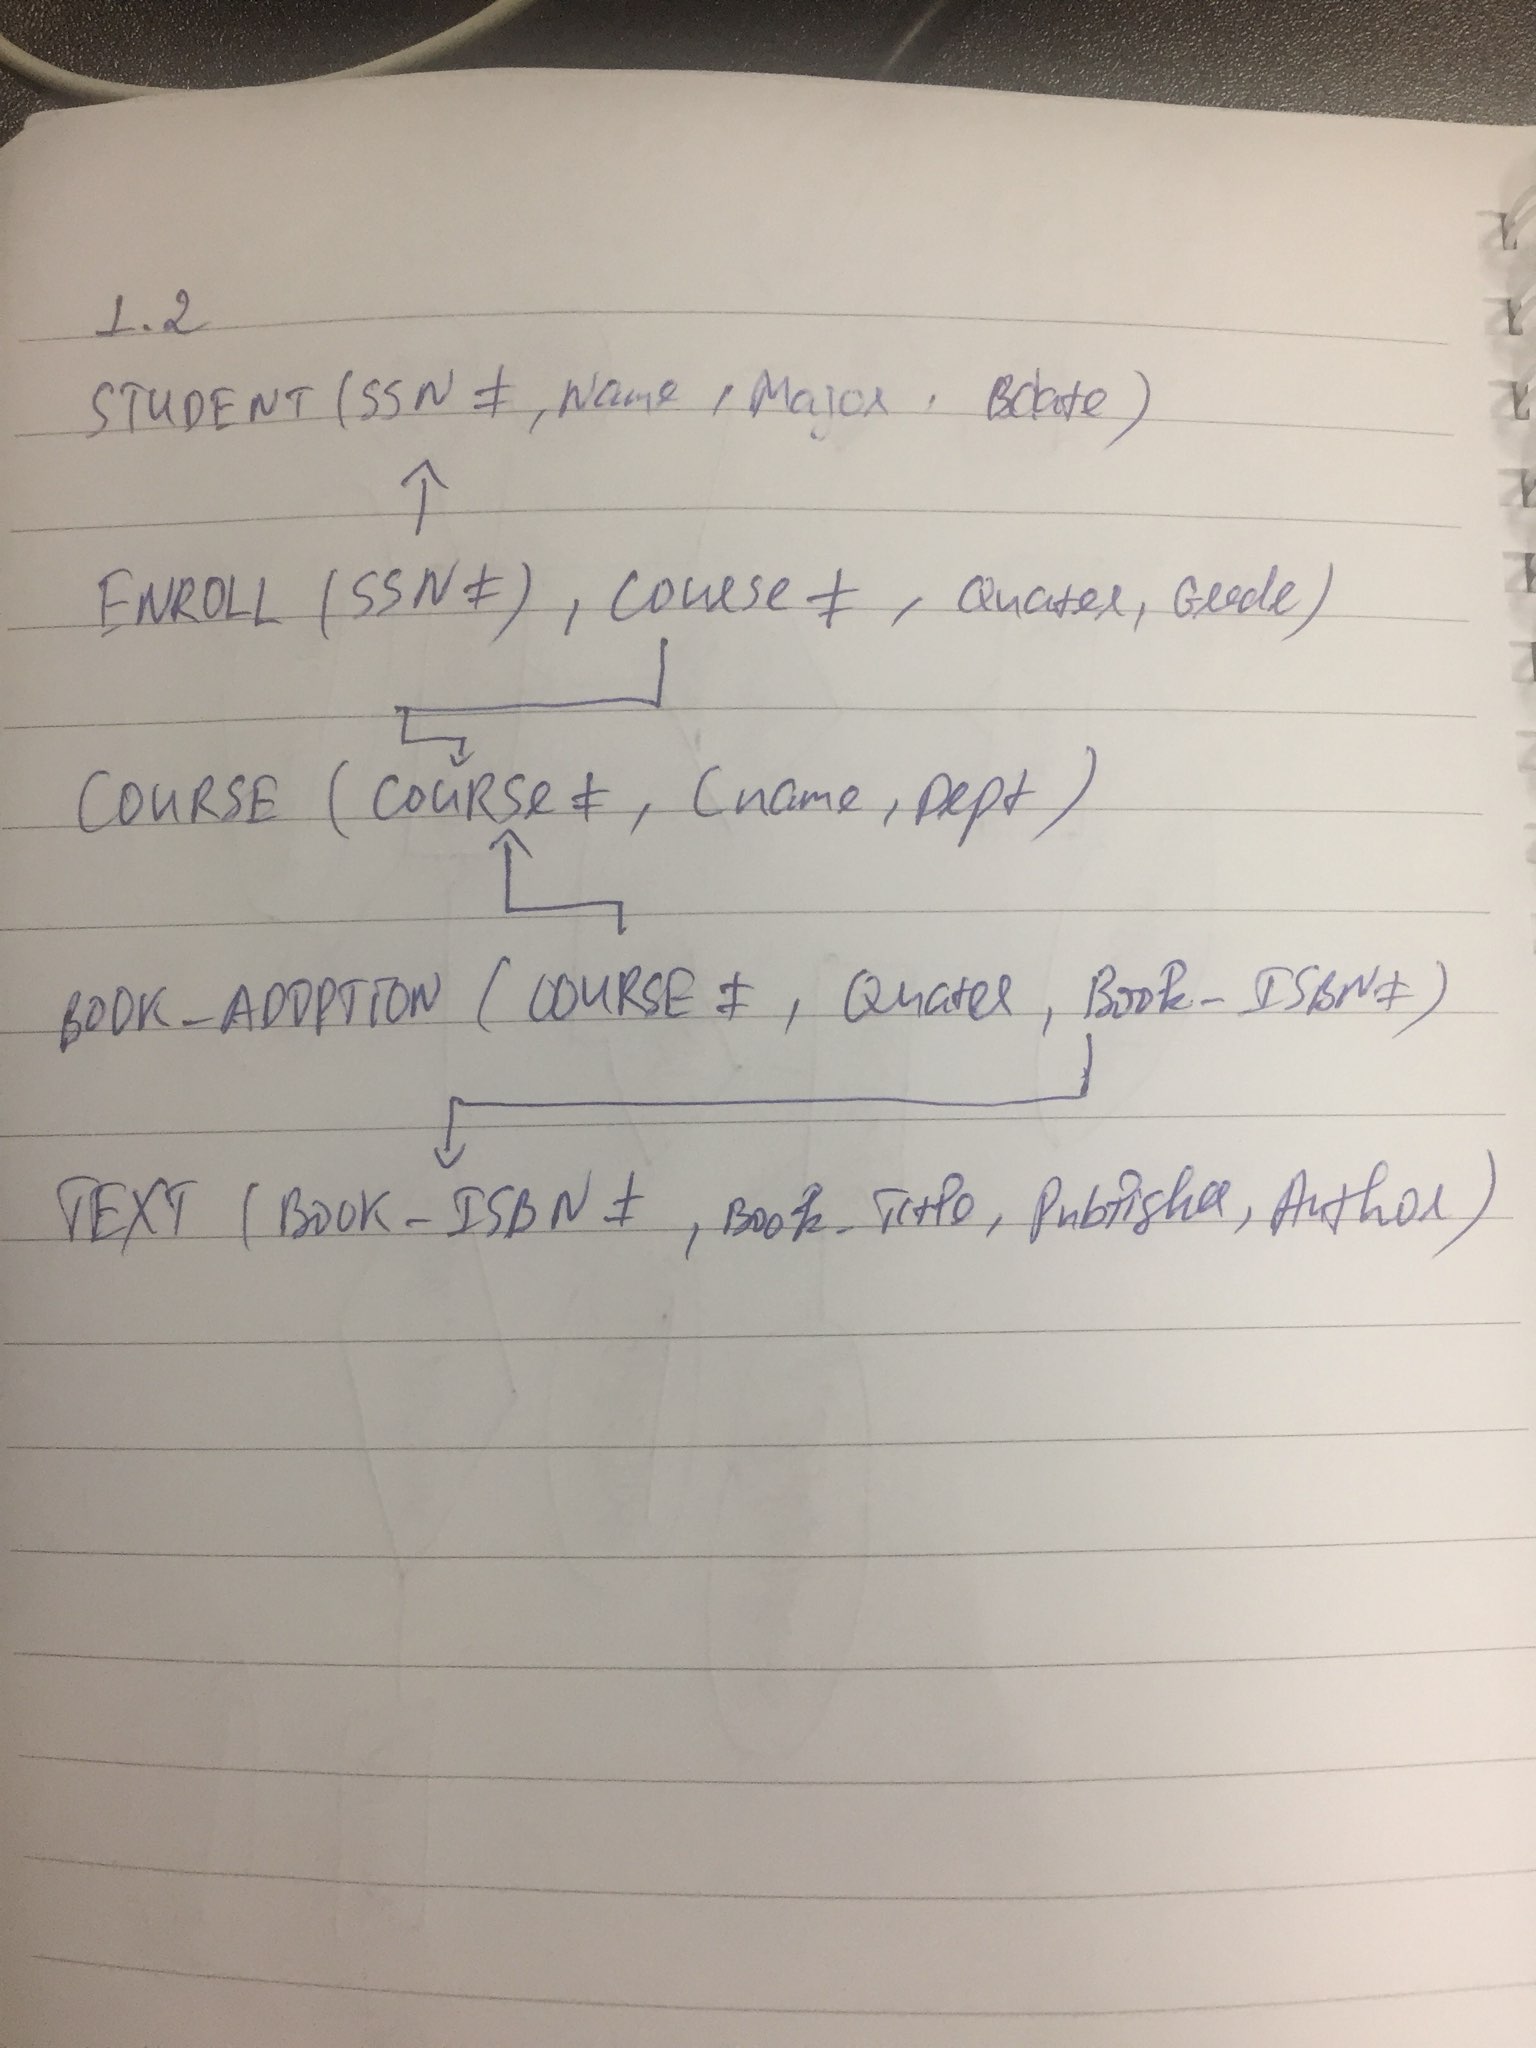 1.2
STUDENT (SSN #, Name, Major, Bdate)
ENROLL (SSN #), Course #, Quater, Grade)
COURSE (COURSe #, Cname, Dept)
BOOK_ADOPTION (COURSE #, Quater, Book_ISBN #)
TEXT (BOOK_ISBN #, Book_Title, Publisher, Author)